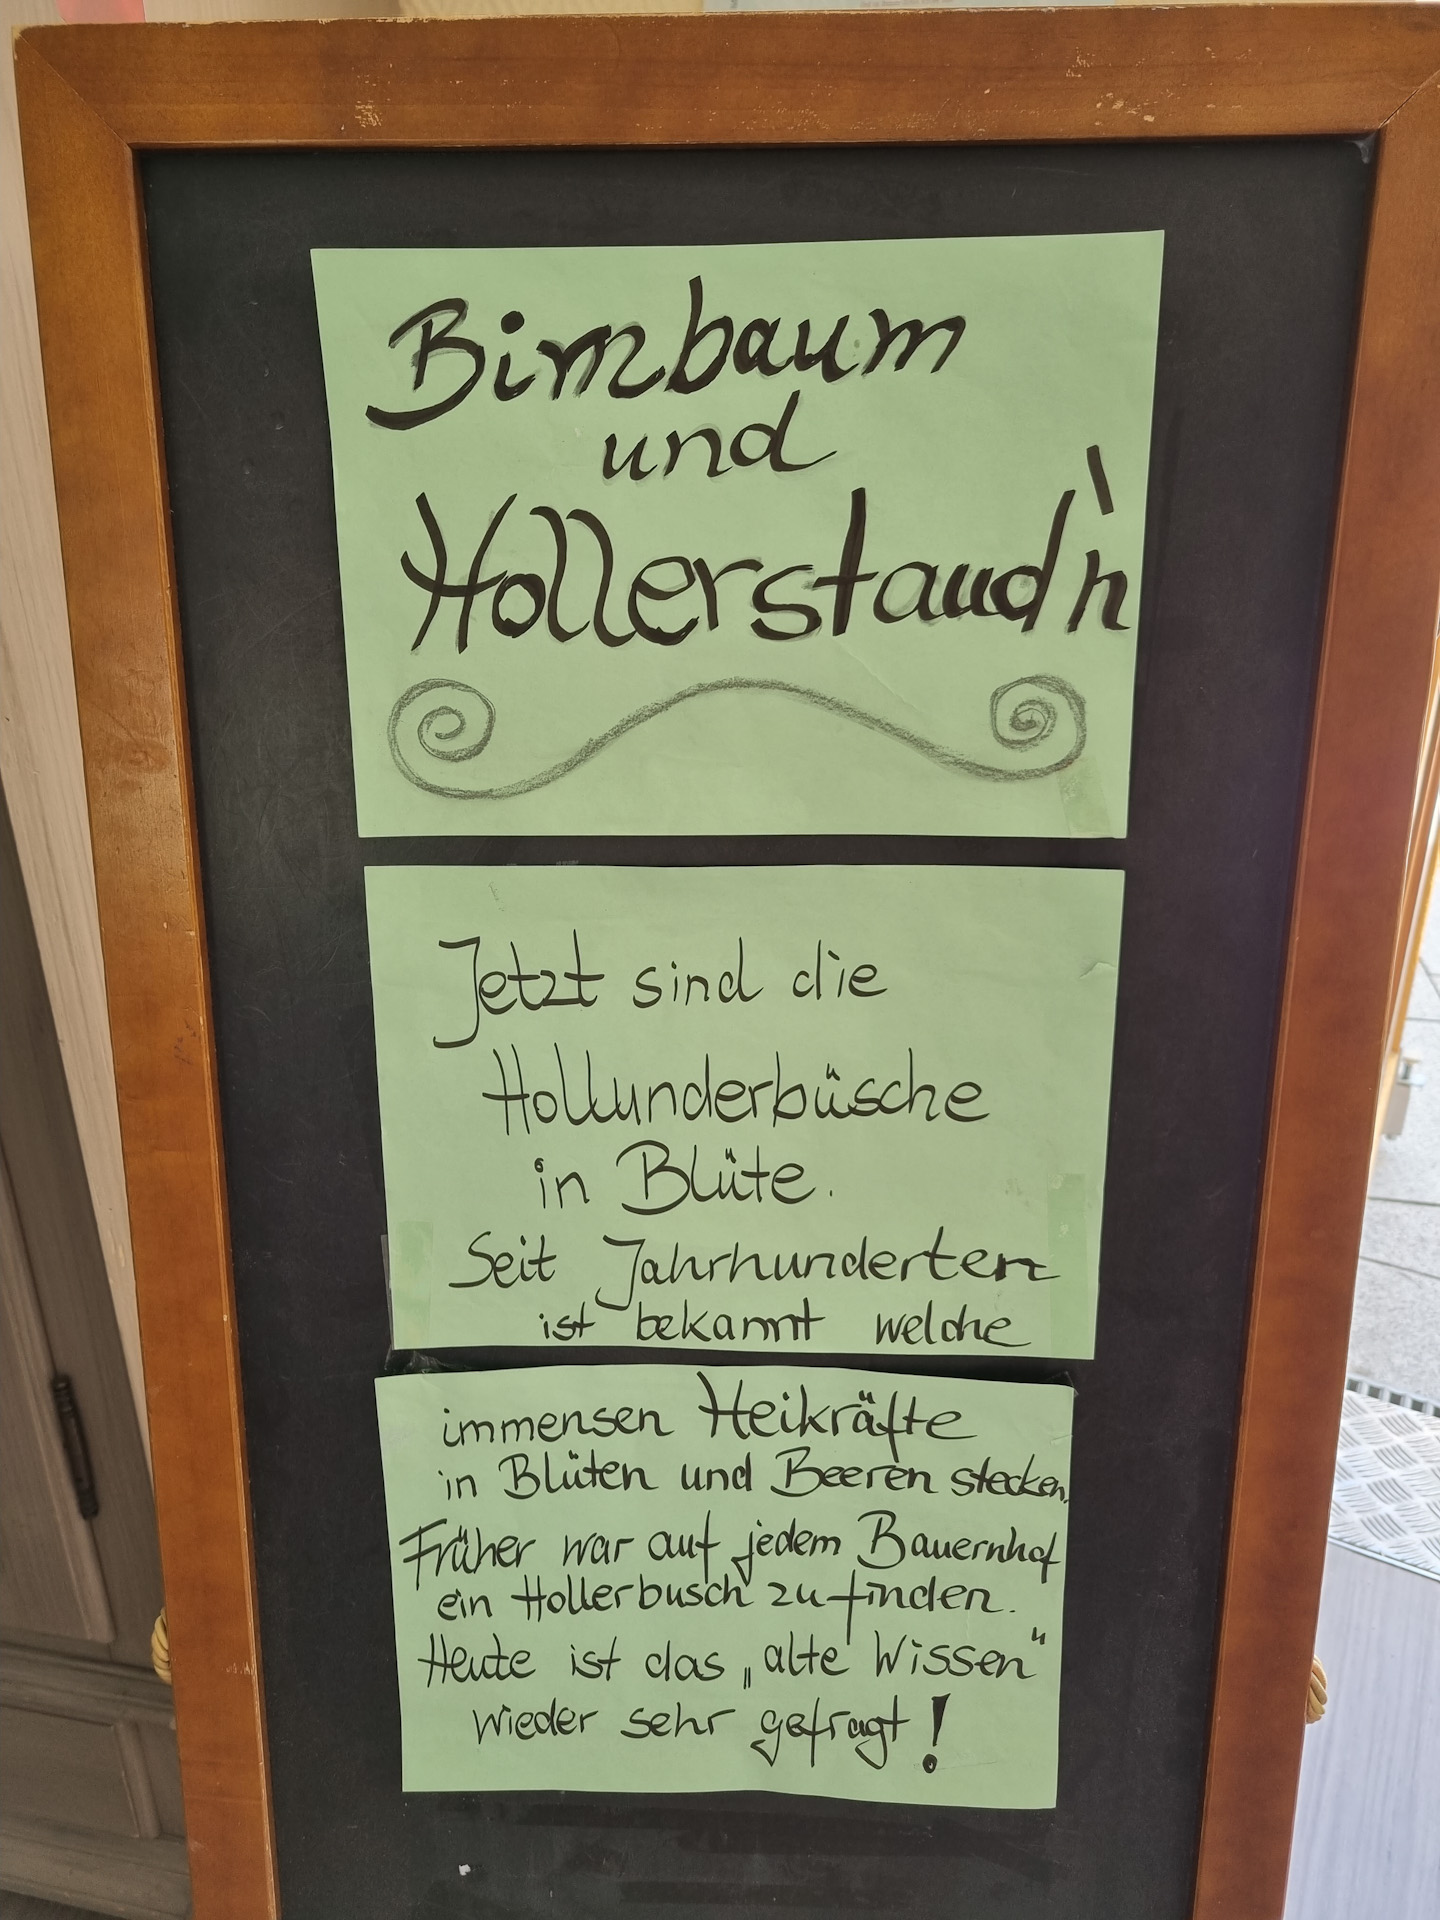 Birnbaum
und
Hollerstaud'n
Jetzt sind die
Hollunderbüsche
in Blüte.
Seit Jahrhunderten
ist bekannt welche
immensen Heikräfte
in Blüten und Beeren stecken.
Früher war auf jedem Bauernhof
ein Hollerbusch zu finden.
Heute ist das „alte Wissen“
wieder sehr gefragt!